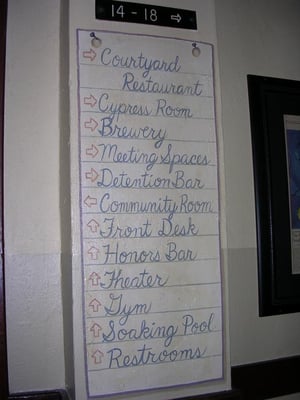 14-18 ⇨
⇨ Courtyard
Restaurant
⇨ Cypress Room
⇨ Brewery
⇨ Meeting Spaces
⇨ Detention Bar
⇦ Community Room
⇧ Front Desk
⇧ Honors Bar
⇧ Theater
⇧ Gym
⇧ Soaking Pool
⇧ Restrooms